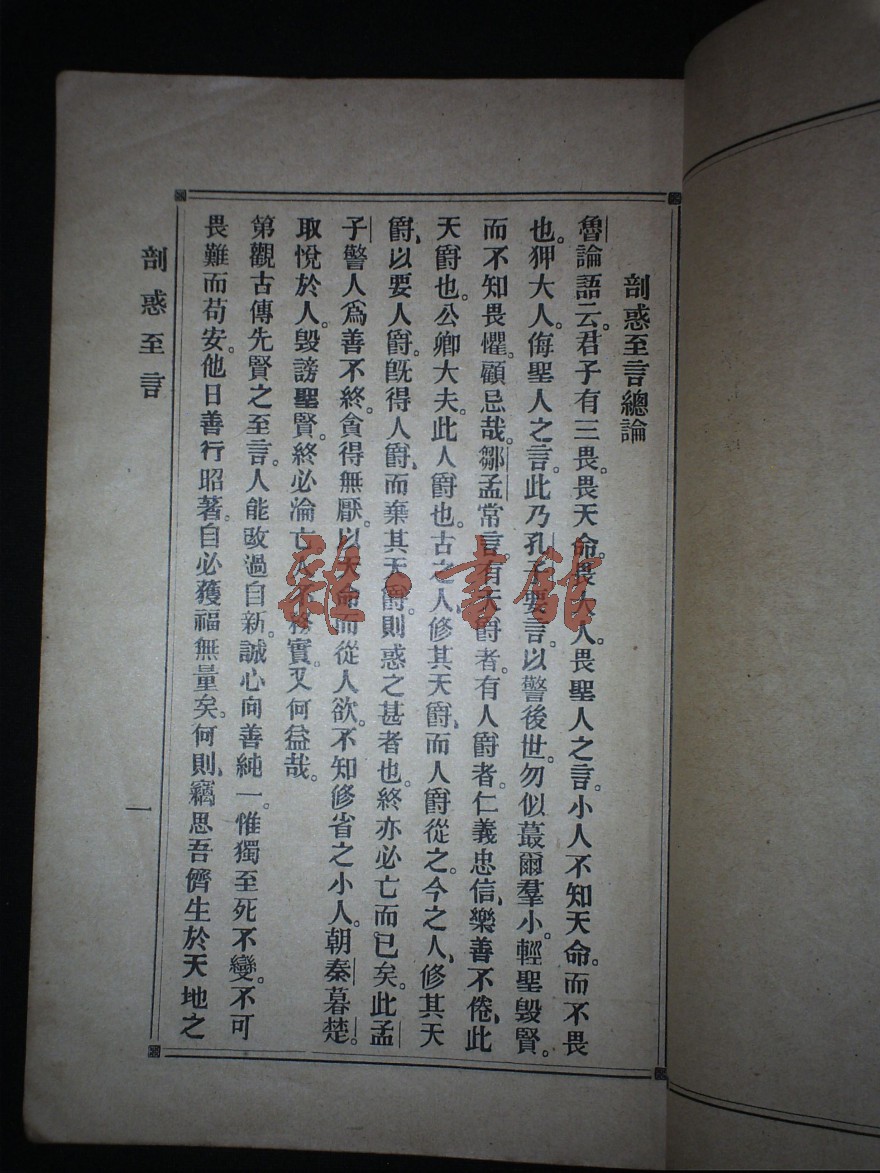 剖惑至言總論
魯論語云。君子有三畏。畏天命。畏大人。畏聖人之言。小人不知天命。而不畏
也。狎大人。侮聖人之言。此乃孔子要言。以警後世。勿似蕞爾羣小。輕聖毀賢。
而不知畏懼。顧忌哉。鄒孟常言。有天爵者。有人爵者。仁義忠信、樂善不倦、此
天爵也。公卿大夫。此人爵也。古之人、修其天爵、而人爵從之。今之人、修其天
爵、以要人爵。旣得人爵、而棄其天爵、則惑之甚者也。終亦必亡而已矣。此孟
子警人爲善不終。貪得無厭。以天命而從人欲。不知修省之小人。朝秦暮楚。
取悅於人。毀謗聖賢。終必淪亡。人不務實。又何益哉。
第觀古傳先賢之至言。人能改過自新。誠心向善純一。惟獨至死不變。不可
畏難而苟安。他日善行昭著。自必獲福無量矣。何則、竊思吾儕生於天地之
剖惑至言
一
雜·書館